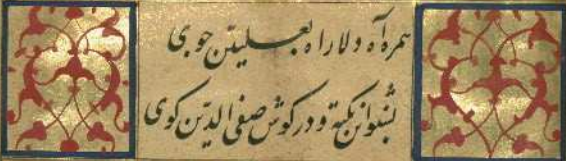 همره آه دلا راه بعلیین جوی
بشنو این نکته و در کوش صفی الدین کوی